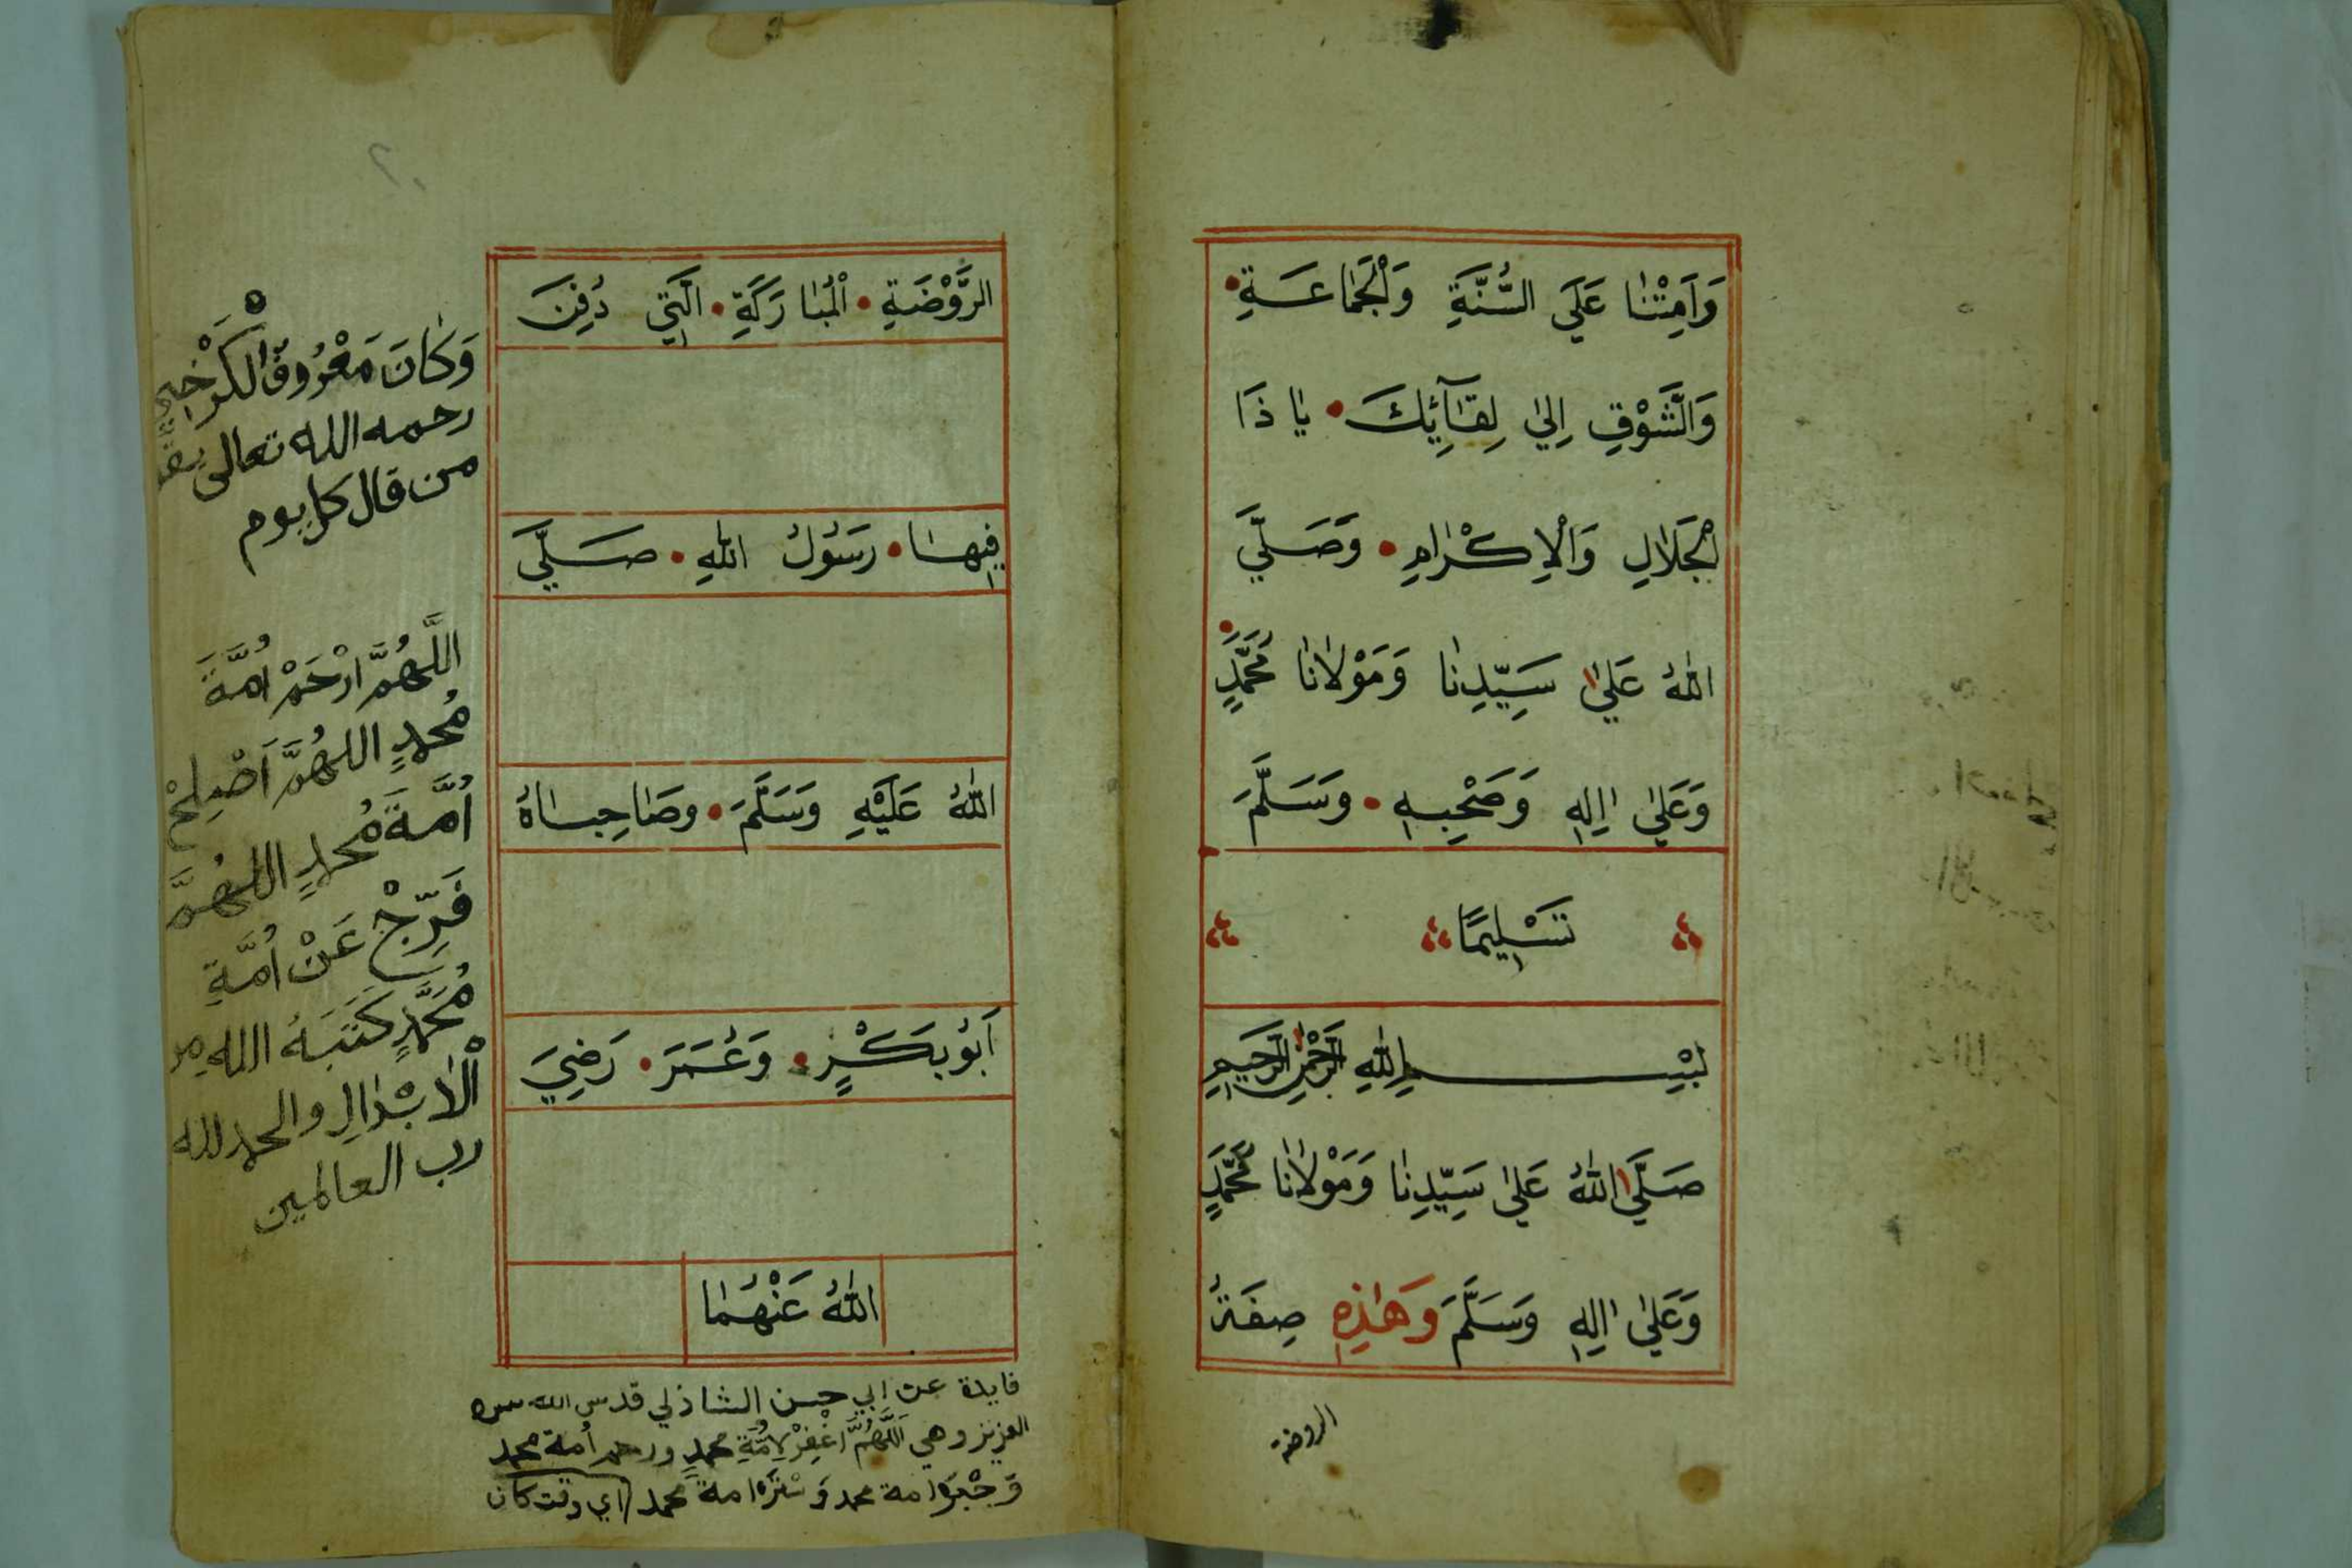 وَاَمِتْنَا عَلَي السُّنَّةِ وَالْجَمَاعَةِ
وَالشَّوْقِ اِلٰي لِقَآئِكَ يَا ذَا
الْجَلَالِ وَالْاِكْرَامِ وَصَلَّي
اللّٰهُ عَلٰي سَيِّدِنَا وَمَوْلَانَا مُحَمَّدٍ
وَعَلٰي اٰلِهِ وَصَحْبِهِ وَسَلَّمَ
تَسْلِيمًا
بِسْمِ اللّٰهِ الرَّحْمٰنِ الرَّحِيمِ
صَلَّي اللّٰهُ عَلٰي سَيِّدِنَا وَمَوْلَانَا مُحَمَّدٍ
وَعَلٰي اٰلِهِ وَسَلَّمَ وَهٰذِهِ صِفَةُ
الروضة
الرَّوْضَةِ الْمُبَارَكَةِ الَّتِي دُفِنَ
فِيهَا رَسُولُ اللّٰهِ صَلَّي
اللّٰهُ عَلَيْهِ وَسَلَّمَ وصَاحِبَاهُ
اَبُوبَكْرٍ وَعُمَرَ رَضِيَ
اللّٰهُ عَنْهُمَا
وَكَانَ مَعْرُوفُ الْكَرْخِي
رحمه الله تعالى
من قال كل يوم
اللَّهُمَّ ارْحَمْ اُمَّةَ
مُحمدٍ اللهُمَّ اَصْلِحْ
اُمَّةَ مُحمدٍ اللهُمَّ
فَرِّجْ عَنْ اُمَّةِ
مُحَمَّدٍ كَتَبَهُ الله مِن
الْاَبْدَالِ والحمد لله
رب العالمين
فايدة عن ابي حسن الشاذلي قدس الله سره
العزيز وهي اَللَّهُمَّ اغْفِرْ لِاُمَّةِ محمدٍ ورحم اُمة محمد
وَجْبُرْ امة محمد وَسْتُرْ امة محمد اي وقت كان